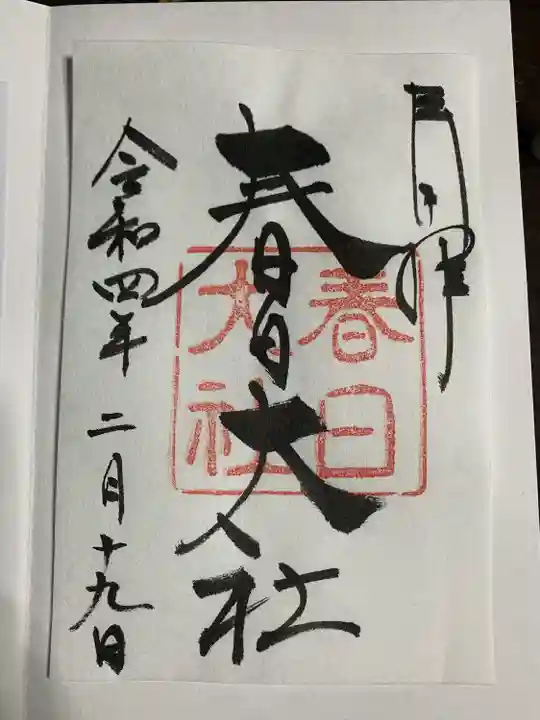 奉拝
春日大社
春日
大社
令和四年 二月十九日